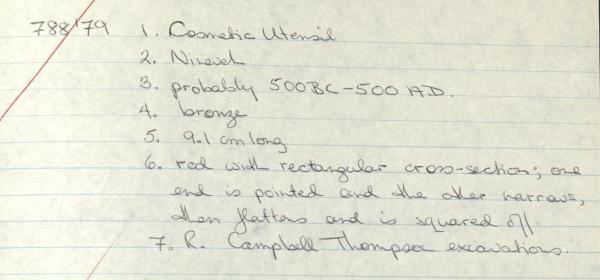 788/79 1. Cosmetic Utensil
2. Nineveh
3. probably 500BC-500 AD.
4. bronze
5. 9.1 cm long
6. rod with rectangular cross-section; one
end is pointed and the other narrows,
then flattens and is squared off.
7. R. Campbell Thompson excavations.